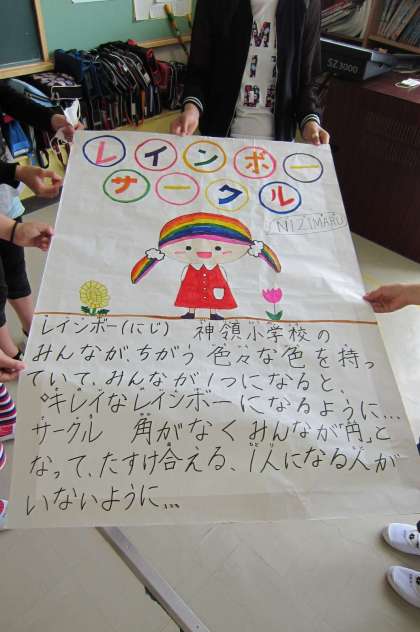 レインボー
サークル
NIZIMARU
レインボー(にじ) 神領小学校の
みんなが、ちがう 色々な色を持っ
ていて、みんなが1つになると、
キレイなレインボーになるように…
サークル 角がなく みんなが「円」と
なって、たすけ合える、1人になる人が
いないように…
SZ3000